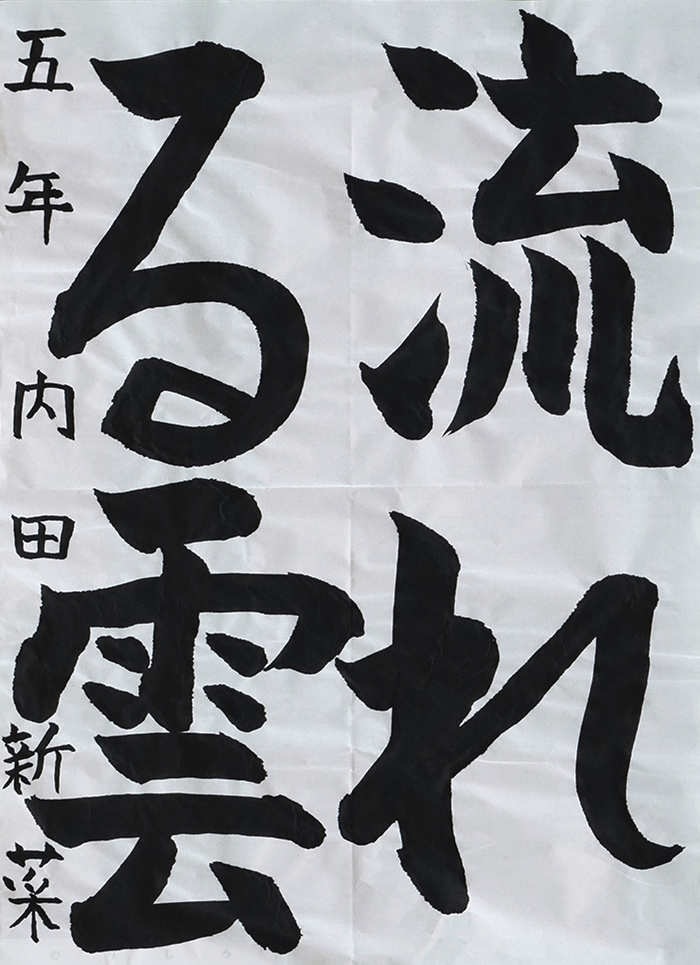 流れ
る雲
五年 内田 新菜